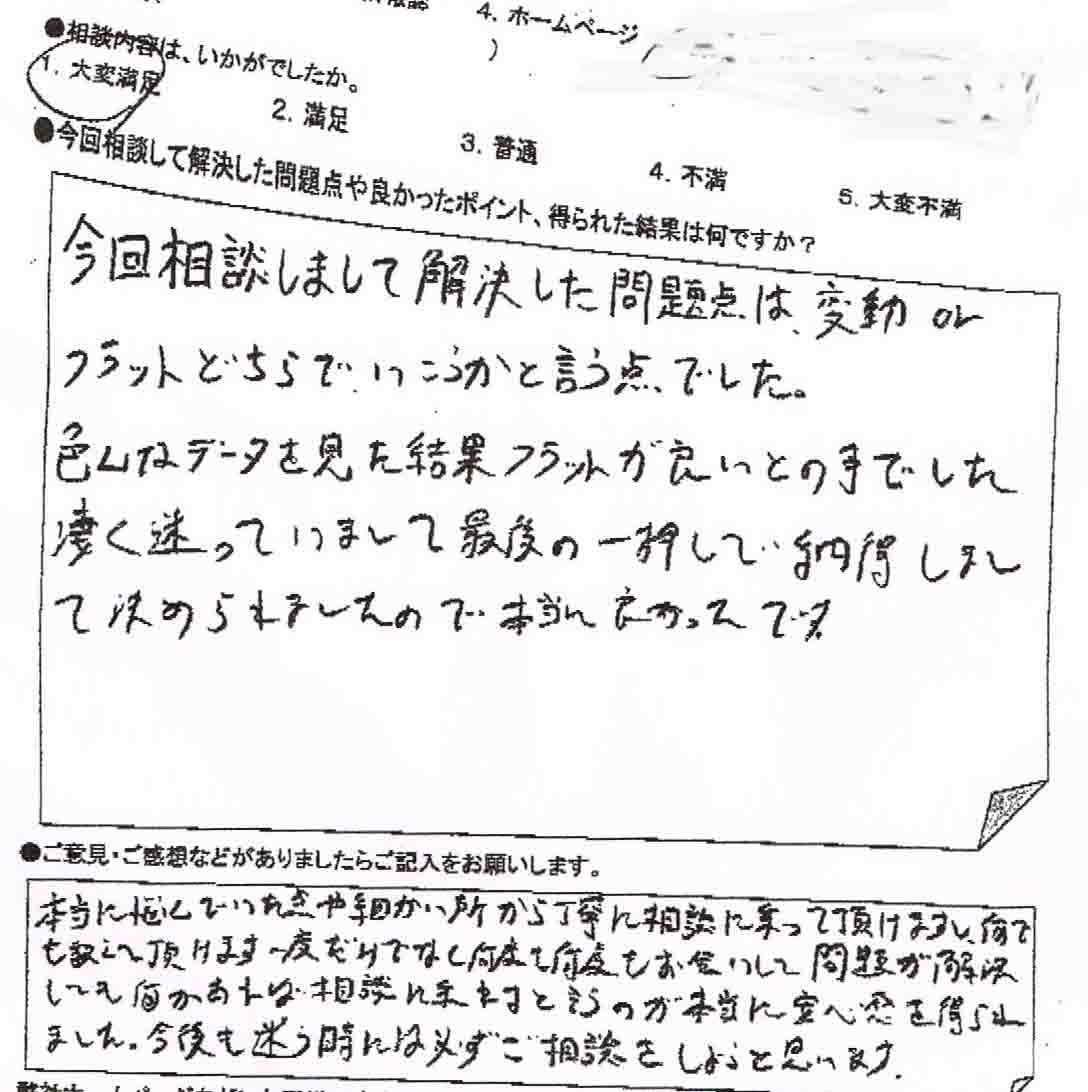 4. ホームページ
)
●相談内容は、いかがでしたか。
1. 大変満足 2. 満足 3. 普通 4. 不満 5. 大変不満
●今回相談して解決した問題点や良かったポイント、得られた結果は何ですか?
今回相談しまして解決した問題点は、変動or
フラットどちらでいこうかと言う点でした。
色んなデータを見た結果フラットが良いとの事でした
凄く迷っていまして最後の一押しで納得しまし
て決められましたので本当に良かったです
●ご意見・ご感想などがありましたらご記入をお願いします。
本当に悩んでいた点や細かい所から丁寧に相談に乗って頂けますし、何で
も教えて頂けます一度だけでなく何度も何度もお会いして問題が解決
しても何かあれば相談に乗れますと言うのが本当に安心感を得られ
ました。今後も迷う時には必ずご相談をしようと思います。